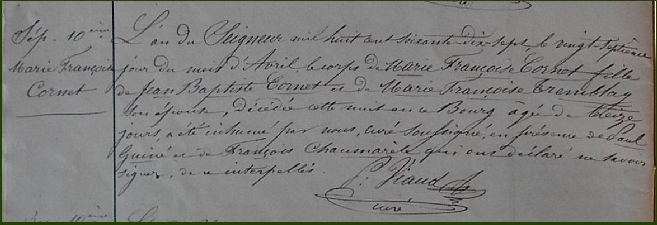 Sép. 10ième
Marie Françoise
Cornet
L'an du Seigneur mil huit cent soixante-dix-sept, le vingt-septième
jour du mois d'Avril, le corps de Marie Françoise Cornet fille
de Jean Baptiste Cornet et de Marie Françoise Tremblay
son épouse, décédée cette nuit en ce Bourg âgée de treize
jours, a été inhumé par nous, curé soussigné, en présence de Paul
Guiné et de François Chaumarêt qui ont déclaré ne savoir
signer, de ce interpellés.
P. Viaud
curé